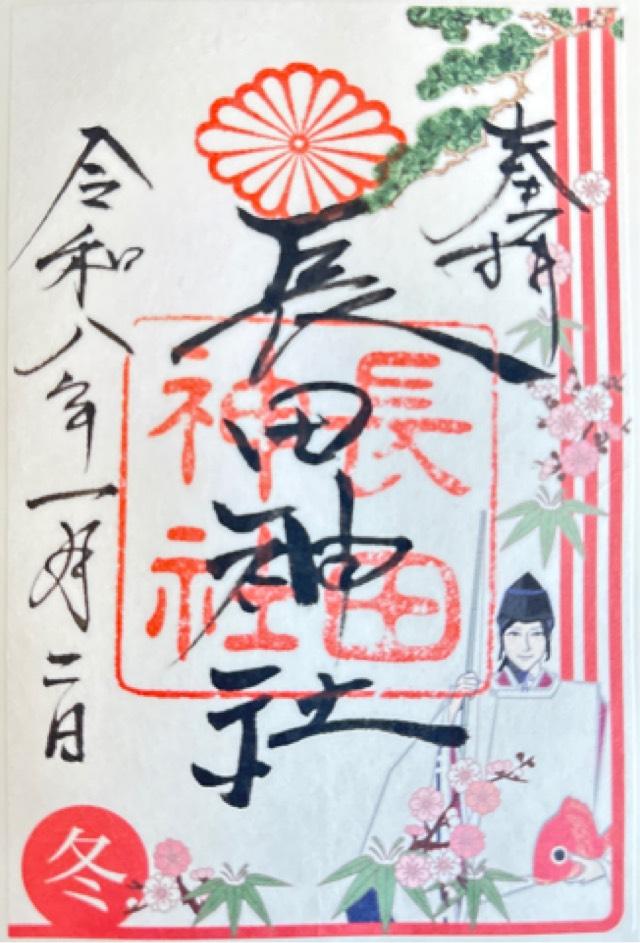 奉拝
長田神社
長田
神社
令和八年一月二日
冬